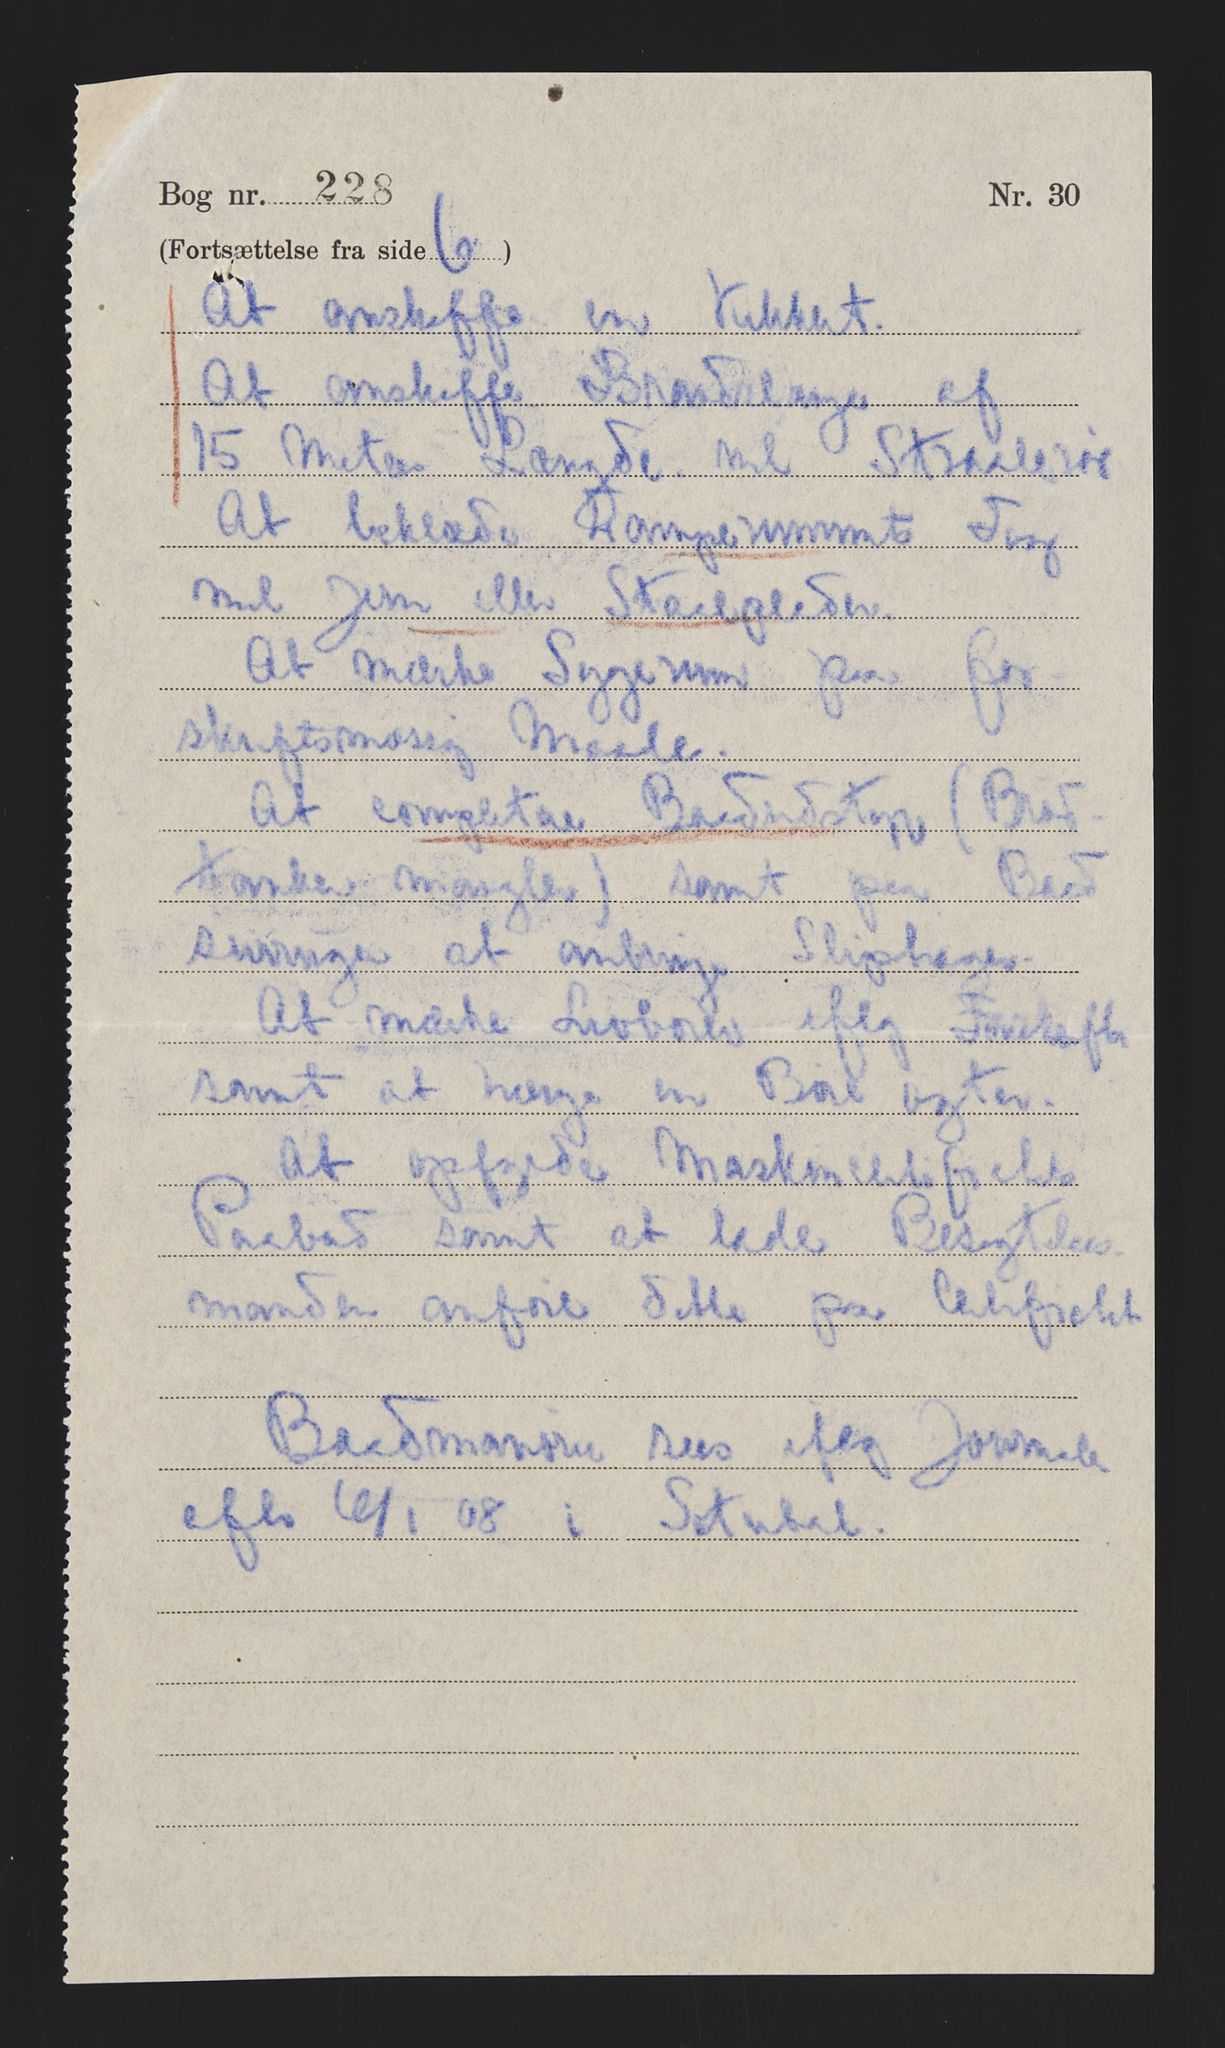 Bog nr. 228 Nr. 30
(Fortsættelse fra side 6)
At anskaffe en Kikkert.
At anskaffe Brandslange af
15 Meter Længde med Straalerør
At beklæde Lamperummets Dør
med Jern eller Staalplader.
At mærke Sygerum paa for-
skriftsmæssig Maade.
At complettere Baadudstyr (Brød-
tanker mangler) samt paa Baad
surringer at anbringe Sliphager.
At mærke Livbøier iflg Forskrifter
samt at hænge en Bøie agter.
At opfylde Maskincertifikatets
Paabud samt at lade Besigtelses-
manden anføre dette paa Certifikatet
Baadmanøvre sees iflg Journalen
i Setubal.